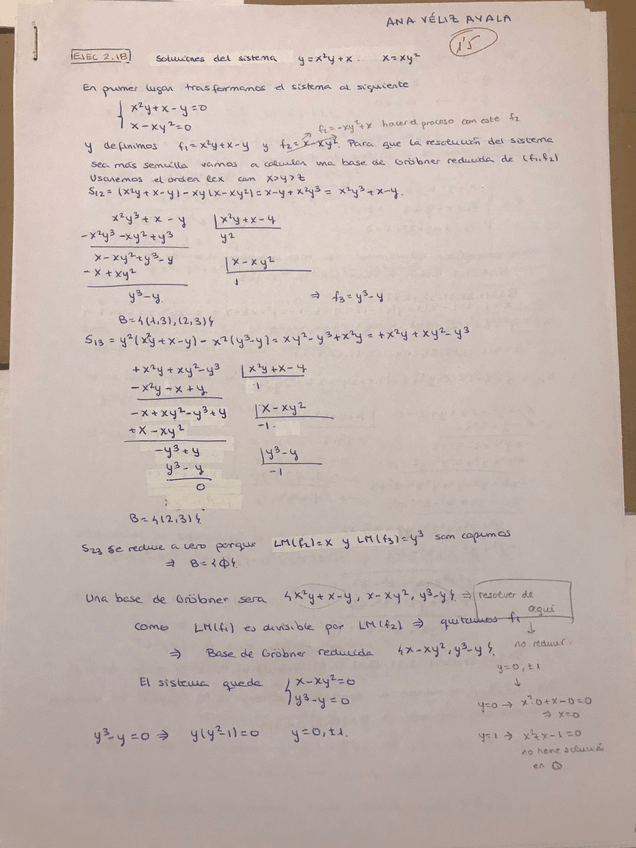 ANA VÉLIZ AYALA
1'5
EJEC 2.18 Soluciones del sistema y=x²y+x. x=xy²
En primer lugar trasformamos el sistema al siguiente
{ x²y+x-y=0
x-xy²=0
f₂=-xy²+x hacer el proceso con este f₂
y definimos f₁=x²y+x-y y f₂=x-xy². Para que la resolución del sistema
sea más sencilla vamos a calcular una base de Gröbner reducida de (f₁,f₂)
Usaremos el orden lex con x>y>z
S₁₂=(x²y+x-y)-xy(x-xy²)=x-y+x²y³= x²y³+x-y.
x²y³+x-y |x²y+x-y
-x²y³-xy²+y³ y²
x-xy²+y³-y |x-xy²
-x+xy² 1
y³-y ⇒ f₃=y³-y
B={(1,3),(2,3)}
S₁₃=y²(x²y+x-y)-x²(y³-y)=xy²-y³+x²y=+x²y+xy²-y³
+x²y+xy²-y³ |x²y+x-y
-x²y-x+y 1
-x+xy²-y³+y |x-xy²
+x-xy² -1.
-y³+y |y³-y
y³-y -1
0
B={(2,3)}
S₂₃ se reduce a cero porque LM(f₂)=x y LM(f₃)=y³ son coprimos
⇒ B={∅}
Una base de Gröbner será {x²y+x-y, x-xy², y³-y} ⇒ resolver de aquí
como LM(f₁) es divisible por LM(f₂) ⇒ quitamos f₁
↓
no reducir
⇒ Base de Gröbner reducida {x-xy², y³-y}
y=0,±1
↓
El sistema queda { x-xy²=0
y³-y=0
y=0 → x²·0+x-0=0
⇒ x=0
y³-y=0 ⇒ y(y²-1)=0 y=0,±1.
y=1 → x²+x-1=0
no tiene solución
en ℚ